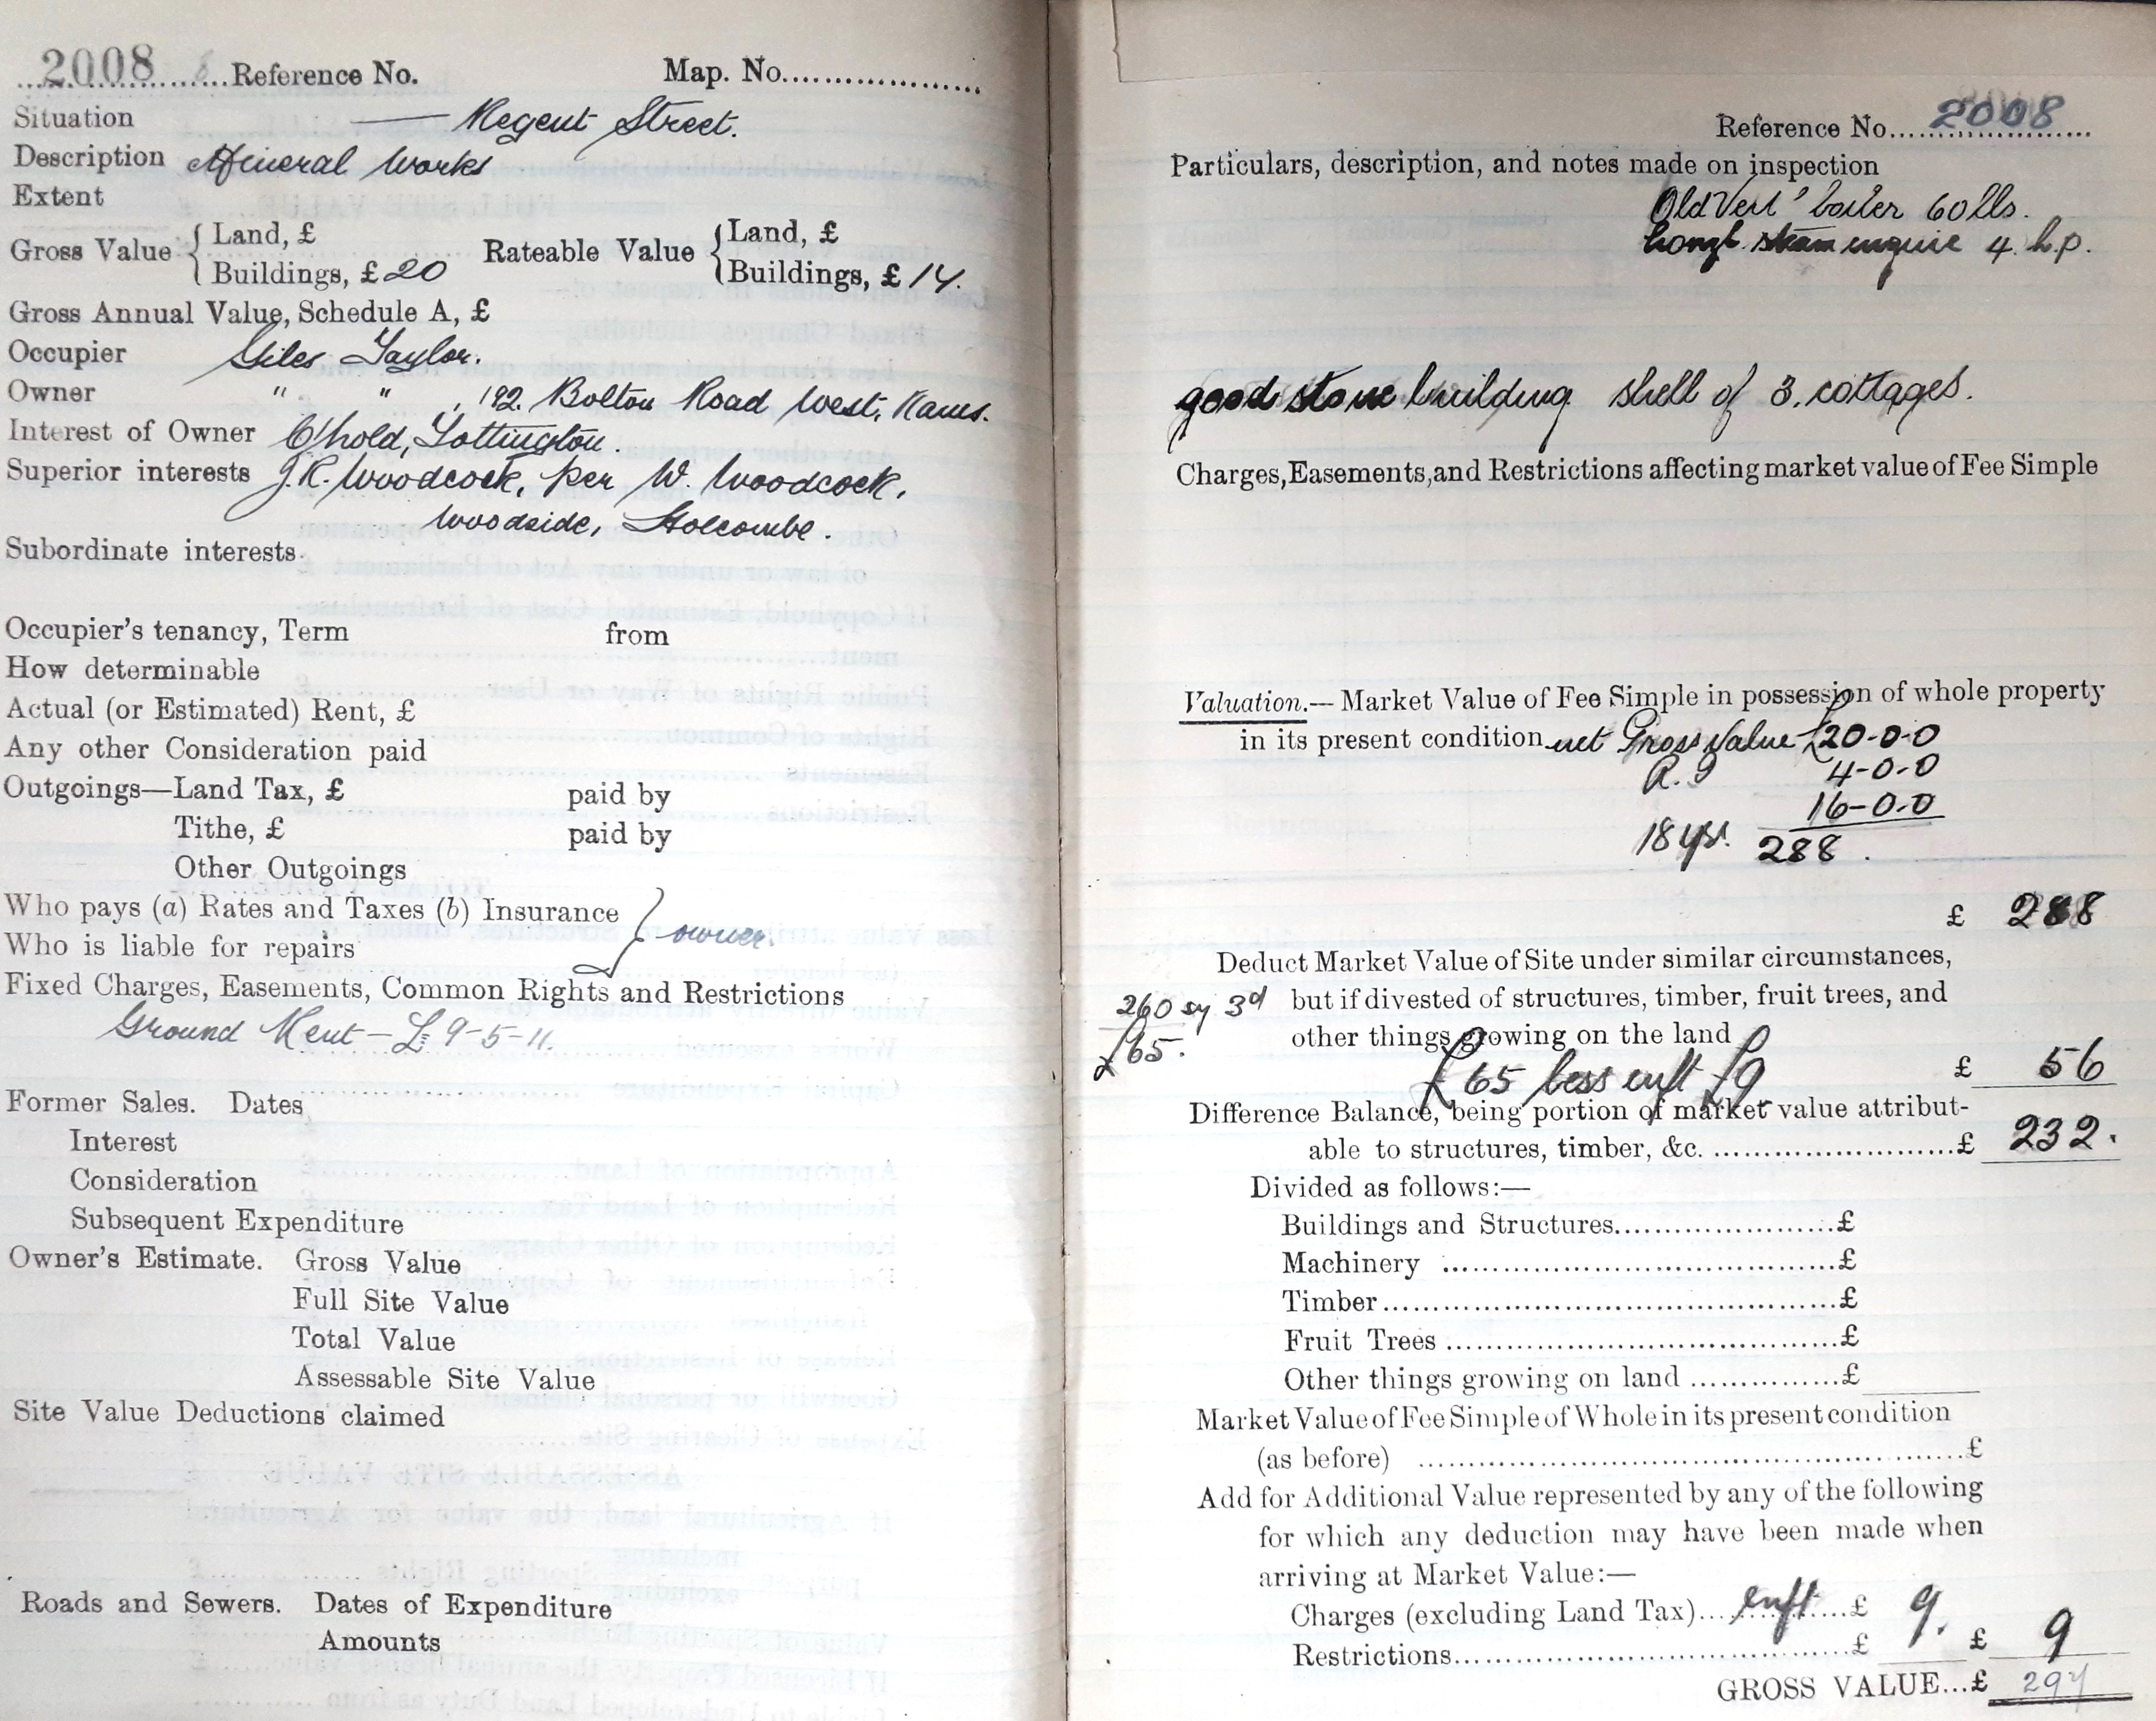 2008 Reference No. Map. No.
Situation — Regent Street.
Description Mineral Works
Extent
Gross Value { Land, £ Rateable Value { Land, £
Buildings, £ 20 Buildings, £ 14.
Gross Annual Value, Schedule A, £
Occupier Giles Taylor.
Owner " " , 192. Bolton Road West, Rams.
Interest of Owner C'hold, Tottington.
Superior interests J.R. Woodcock, per W. Woodcock,
Woodside, Holcombe.
Subordinate interests
Occupier's tenancy, Term from
How determinable
Actual (or Estimated) Rent, £
Any other Consideration paid
Outgoings—Land Tax, £ paid by
Tithe, £ paid by
Other Outgoings
Who pays (a) Rates and Taxes (b) Insurance
Who is liable for repairs } owner.
Fixed Charges, Easements, Common Rights and Restrictions
Ground Rent — £9-5-11.
Former Sales. Dates
Interest
Consideration
Subsequent Expenditure
Owner's Estimate. Gross Value
Full Site Value
Total Value
Assessable Site Value
Site Value Deductions claimed
Roads and Sewers. Dates of Expenditure
Amounts
Reference No. 2008
Particulars, description, and notes made on inspection
Old Vert' boiler 60 lbs.
steam engine 4. h.p.
good stone building shell of 3. cottages.
Charges, Easements, and Restrictions affecting market value of Fee Simple
Valuation.— Market Value of Fee Simple in possession of whole property
in its present condition net Gross Value £20-0-0
4-0-0
16-0-0
18 yrs. 288.
£ 288
Deduct Market Value of Site under similar circumstances,
260 sy 3d but if divested of structures, timber, fruit trees, and
£65. other things growing on the land
£65 less enft £9 £ 56
Difference Balance, being portion of market value attribut-
able to structures, timber, &c. £ 232.
Divided as follows:—
Buildings and Structures £
Machinery £
Timber £
Fruit Trees £
Other things growing on land £
Market Value of Fee Simple of Whole in its present condition
(as before) £
Add for Additional Value represented by any of the following
for which any deduction may have been made when
arriving at Market Value:—
Charges (excluding Land Tax) enft £ 9.
Restrictions £ £ 9
GROSS VALUE...£ 297